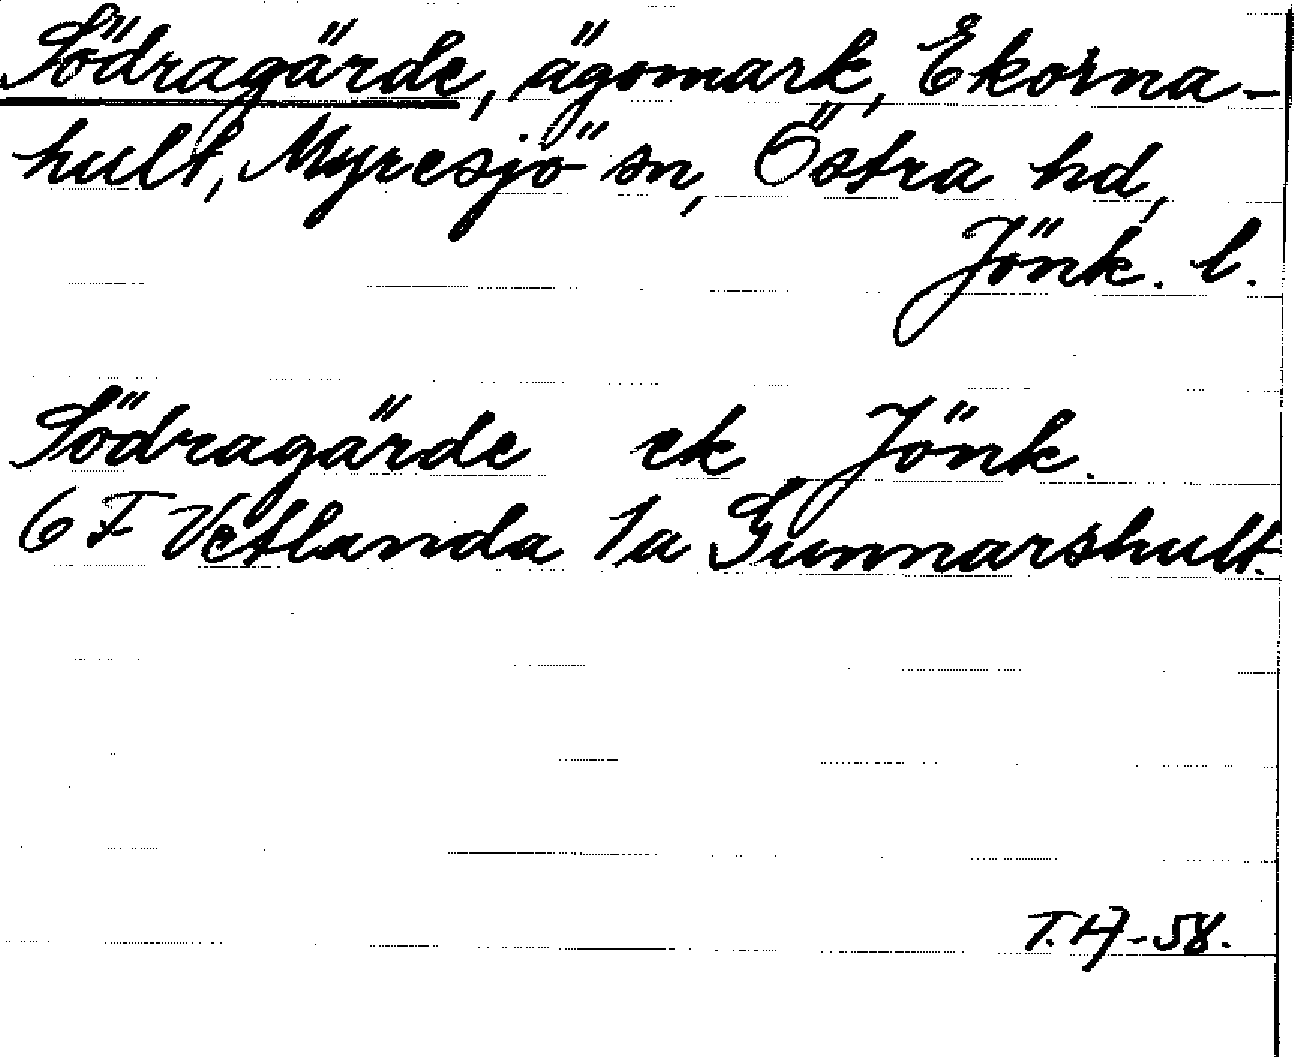 Södragärde, ägomark, Ekorna-
hult, Myresjö sn, Östra hd,
Jönk. l.
Södragärde ek Jönk.
6 F Vetlanda 1a Gunnarshult.
T.H-58.